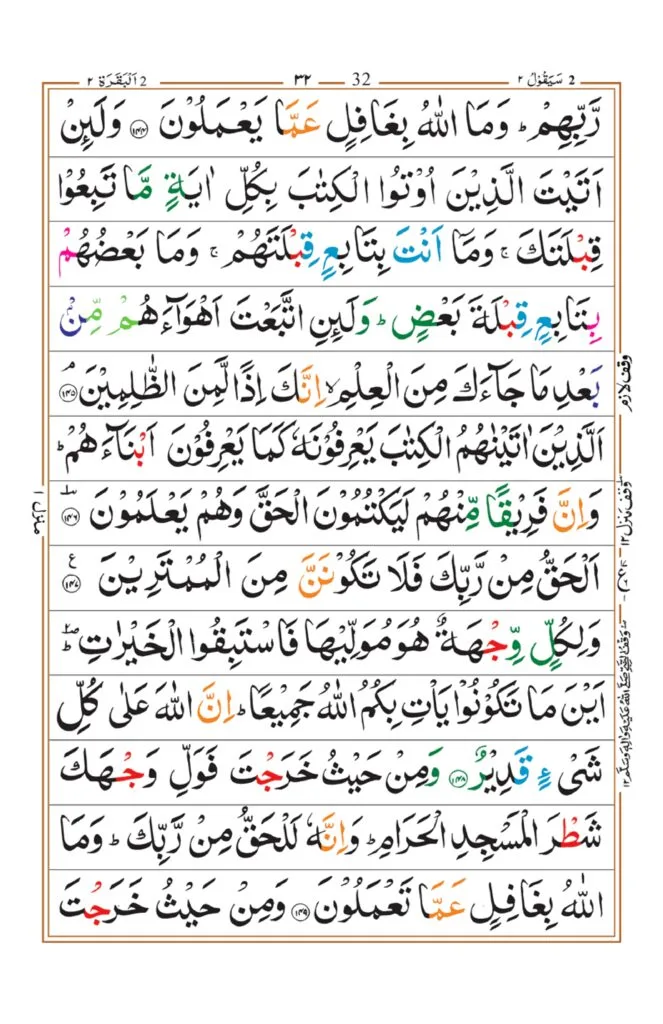 2 سَيَقُوْلُ ٢ 32 ٣٢ 2 اَلْبَقَرَة ٢
رَّبِّهِمْ ؕ وَمَا اللّٰهُ بِغَافِلٍ عَمَّا يَعْمَلُوْنَ ﴿۱۴۴﴾ وَلَٮِٕنْ
اَتَيْتَ الَّذِيْنَ اُوْتُوا الْكِتٰبَ بِكُلِّ اٰيَةٍ مَّا تَبِعُوْا
قِبْلَتَكَ ۚ وَمَآ اَنْتَ بِتَابِعٍ قِبْلَتَهُمْ ۚ وَمَا بَعْضُهُمْ
بِتَابِعٍ قِبْلَةَ بَعْضٍ ؕ وَلَٮِٕنِ اتَّبَعْتَ اَهْوَآءَهُمْ مِّنْۢ
بَعْدِ مَا جَآءَكَ مِنَ الْعِلْمِ ۙ اِنَّكَ اِذًا لَّمِنَ الظّٰلِمِيْنَ ۘ ﴿۱۴۵﴾
اَلَّذِيْنَ اٰتَيْنٰهُمُ الْكِتٰبَ يَعْرِفُوْنَهٗ كَمَا يَعْرِفُوْنَ اَبْنَآءَهُمْ ؕ
وَاِنَّ فَرِيْقًا مِّنْهُمْ لَيَكْتُمُوْنَ الْحَقَّ وَهُمْ يَعْلَمُوْنَ ؔ ﴿۱۴۶﴾
اَلْحَقُّ مِنْ رَّبِّكَ فَلَا تَكُوْنَنَّ مِنَ الْمُمْتَرِيْنَ ﴿۱۴۷﴾ ع
وَلِكُلٍّ وِّجْهَةٌ هُوَ مُوَلِّيْهَا فَاسْتَبِقُوا الْخَيْرٰتِ ؕؔ
اَيْنَ مَا تَكُوْنُوْا يَاْتِ بِكُمُ اللّٰهُ جَمِيْعًا ؕ اِنَّ اللّٰهَ عَلٰى كُلِّ
شَىْءٍ قَدِيْرٌ ﴿۱۴۸﴾ وَمِنْ حَيْثُ خَرَجْتَ فَوَلِّ وَجْهَكَ
شَطْرَ الْمَسْجِدِ الْحَرَامِ ؕ وَاِنَّهٗ لَلْحَقُّ مِنْ رَّبِّكَ ؕ وَمَا
اللّٰهُ بِغَافِلٍ عَمَّا تَعْمَلُوْنَ ﴿۱۴۹﴾ وَمِنْ حَيْثُ خَرَجْتَ
وقف لازم
وقف منزل ١٢
وقف النبى صلى الله عليه واله وسلم ١٢
منزل ١